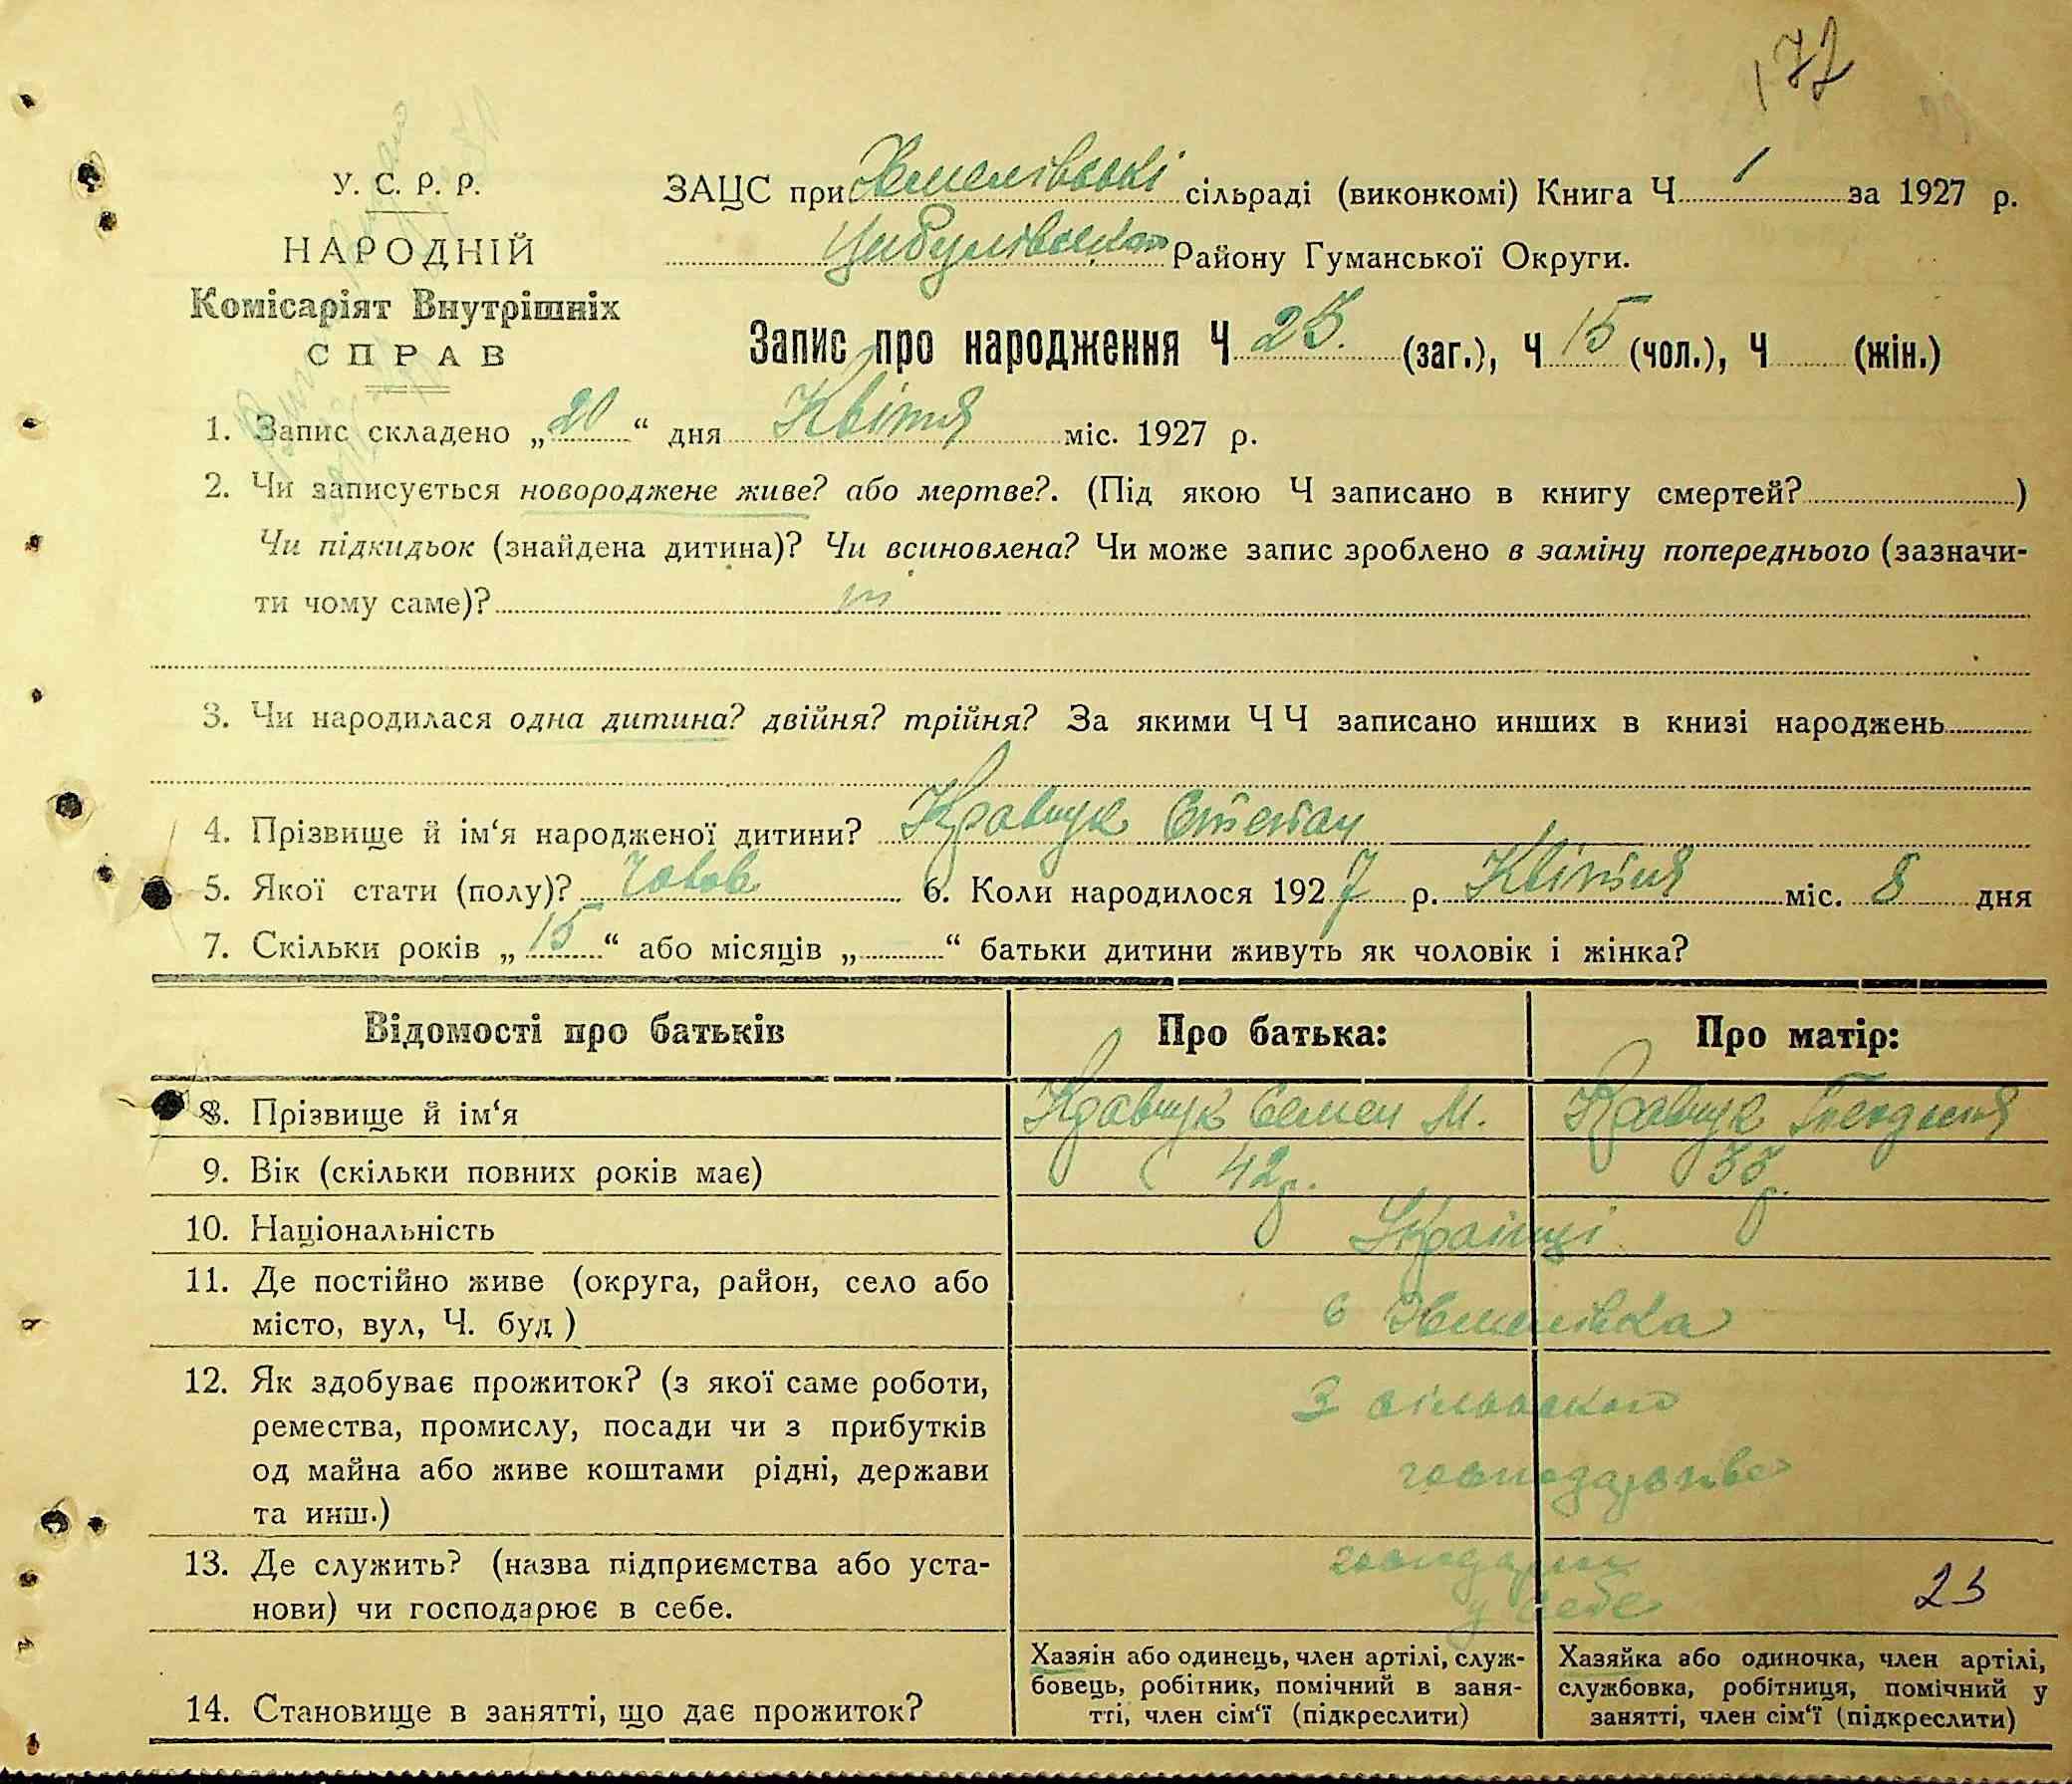 172
У. С. Р. Р.
НАРОДНІЙ
Комісаріят Внутрішніх
СПРАВ
ЗАЦС при Хмелівські сільраді (виконкомі) Книга Ч 1 за 1927 р.
Цибулівського Району Гуманської Округи.
Запис про народження Ч 25. (заг.), Ч 15 (чол.), Ч (жін.)
1. Запис складено „20“ дня Квітня міс. 1927 р.
2. Чи записується новороджене живе? або мертве?. (Під якою Ч записано в книгу смертей? )
Чи підкидьок (знайдена дитина)? Чи всиновлена? Чи може запис зроблено в заміну попереднього (зазначи-
ти чому саме)?
3. Чи народилася одна дитина? двійня? трійня? За якими Ч Ч записано инших в книзі народжень
4. Прізвище й ім‘я народженої дитини? Кравчук Степан
5. Якої стати (полу)? Чолов 6. Коли народилося 1927 р. Квітня міс. 8 дня
7. Скільки років „15“ або місяців „ “ батьки дитини живуть як чоловік і жінка?
Відомості про батьків Про батька: Про матір:
8. Прізвище й ім‘я Кравчук Семен М. Кравчук
9. Вік (скільки повних років має) 42 р.
10. Національність Українці
11. Де постійно живе (округа, район, село або
місто, вул, Ч. буд ) с Хмелівка
12. Як здобуває прожиток? (з якої саме роботи,
ремества, промислу, посади чи з прибутків
од майна або живе коштами рідні, держави
та инш.)
З сільського
господарства
13. Де служить? (назва підприємства або уста-
нови) чи господарює в себе.
у себе
23
14. Становище в занятті, що дає прожиток?
Хазяін або одинець, член артілі, служ-
бовець, робітник, помічний в заня-
тті, член сім‘ї (підкреслити)
Хазяйка або одиночка, член артілі,
службовка, робітниця, помічний у
занятті, член сім‘ї (підкреслити)